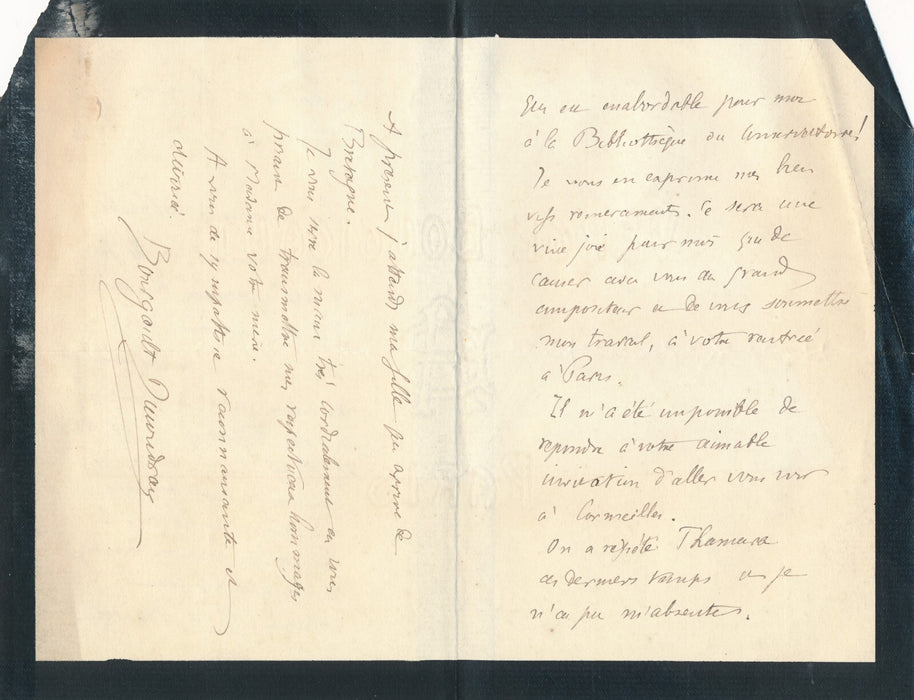 que eu enabordable pour moi
à la Bibliothèque du Conservatoire!
Je vous en exprime mes bien
vifs remerciements. Ce sera une
vive joie pour moi que de
causer avec vous du grand
compositeur et de vous soumettre
mon travail, à votre rentrée
à Paris.
Il m'a été impossible de
repondre à votre aimable
invitation d'aller vous voir
à Cormeilles.
On a répété Thamara
ces derniers temps et je
n'ai pu m'absenter.
A présent j'attends ma fille qui arrive de
Bretagne.
Je vous serre la main très cordialement en vous
priant de transmettre mes respectueux hommages
à Madame votre mère.
A vous de sympathie reconnaissante et
dévouée.
Bourgault Ducoudray